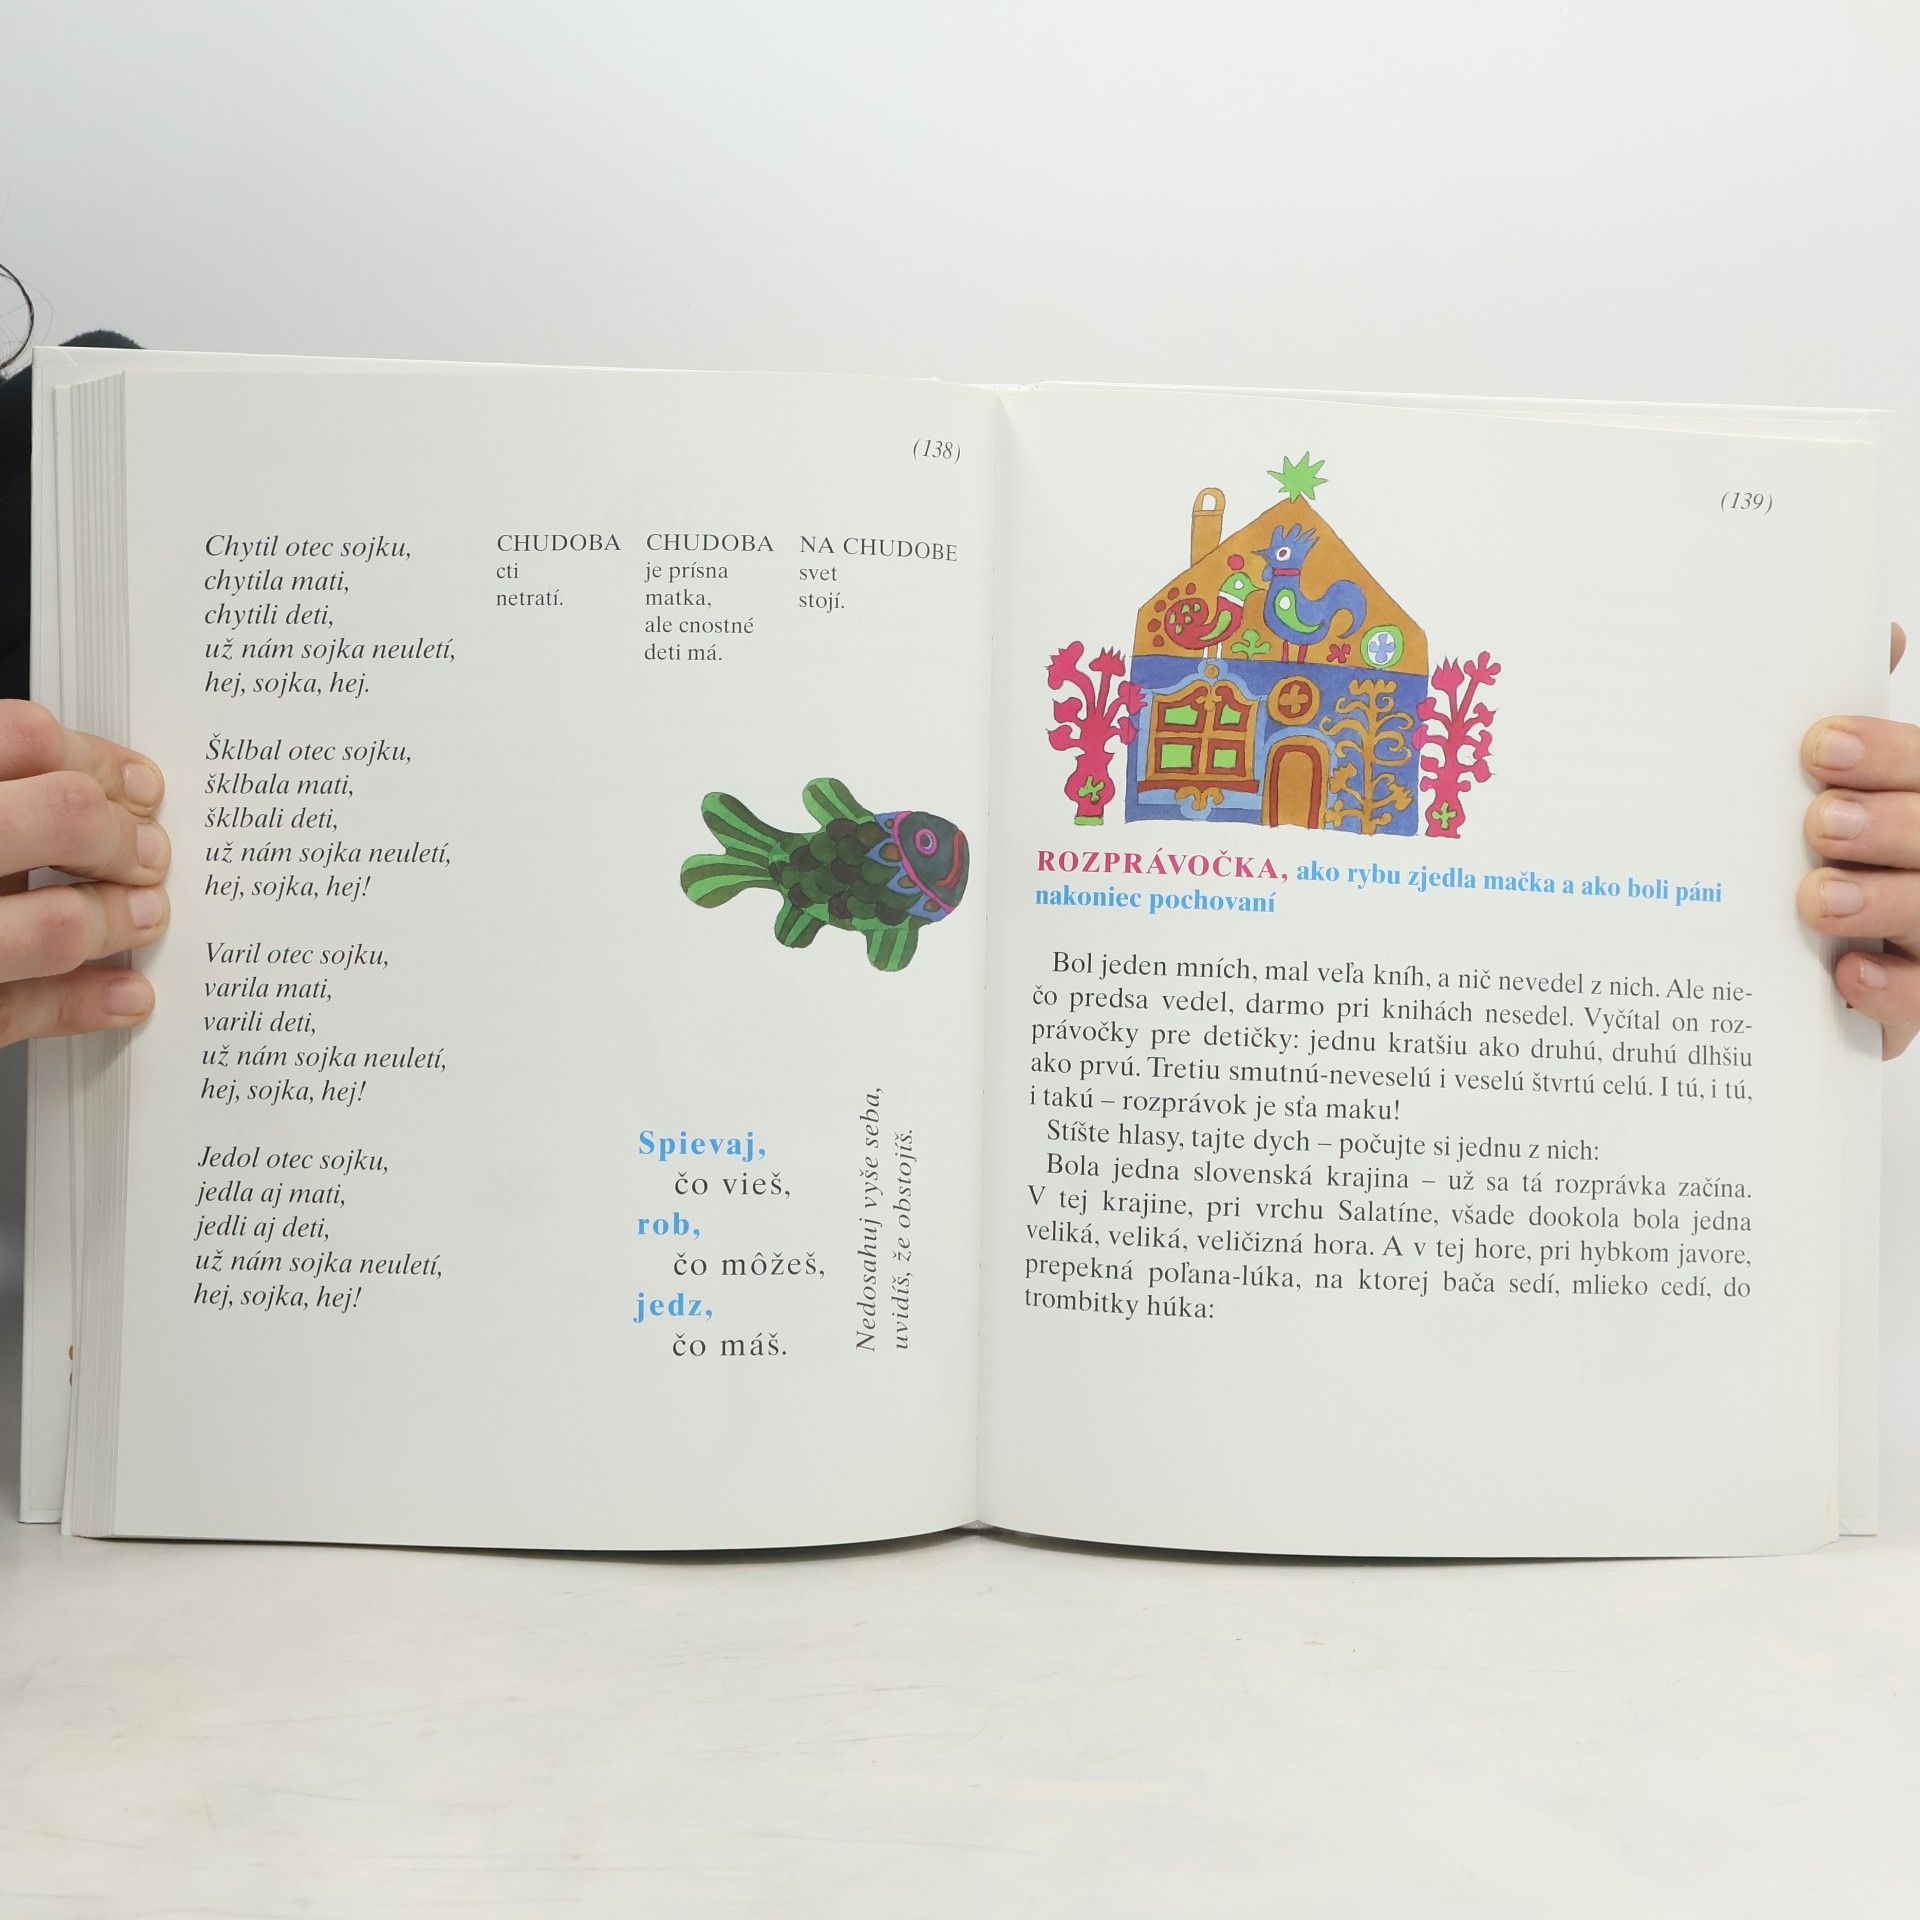 (138)
Chytil otec sojku,
chytila mati,
chytili deti,
už nám sojka neuletí,
hej, sojka, hej.
Šklbal otec sojku,
šklbala mati,
šklbali deti,
už nám sojka neuletí,
hej, sojka, hej!
Varil otec sojku,
varila mati,
varili deti,
už nám sojka neuletí,
hej, sojka, hej!
Jedol otec sojku,
jedla aj mati,
jedli aj deti,
už nám sojka neuletí,
hej, sojka, hej!
CHUDOBA
cti
netratí.
CHUDOBA
je prísna
matka,
ale cnostné
deti má.
NA CHUDOBE
svet
stojí.
Spievaj,
čo vieš,
rob,
čo môžeš,
jedz,
čo máš.
Nedosahuj vyše seba,
uvidíš, že obstojíš.
(139)
ROZPRÁVOČKA, ako rybu zjedla mačka a ako boli páni
nakoniec pochovaní
Bol jeden mních, mal veľa kníh, a nič nevedel z nich. Ale nie-
čo predsa vedel, darmo pri knihách nesedel. Vyčítal on roz-
právočky pre detičky: jednu kratšiu ako druhú, druhú dlhšiu
ako prvú. Tretiu smutnú-neveselú i veselú štvrtú celú. I tú, i tú,
i takú – rozprávok je sťa maku!
Stíšte hlasy, tajte dych – počujte si jednu z nich:
Bola jedna slovenská krajina – už sa tá rozprávka začína.
V tej krajine, pri vrchu Salatíne, všade dookola bola jedna
veliká, veliká, veličizná hora. A v tej hore, pri hybkom javore,
prepekná poľana-lúka, na ktorej bača sedí, mlieko cedí, do
trombitky húka: